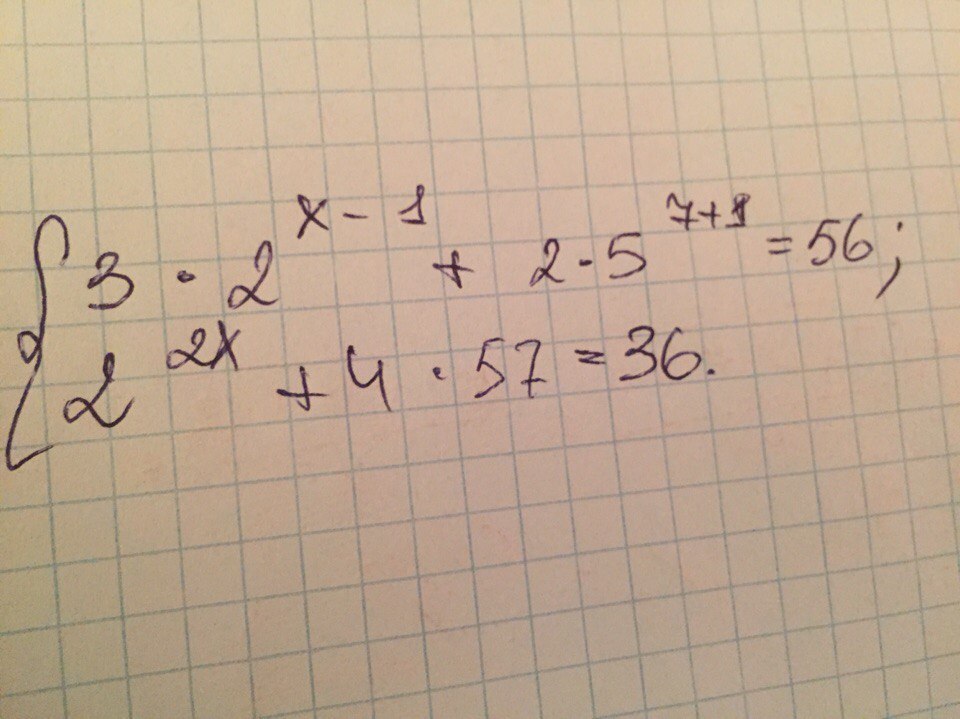 3 · 2^{x-1} + 2 · 5^{7+1} = 56;
2^{2x} + 4 · 57 = 36.